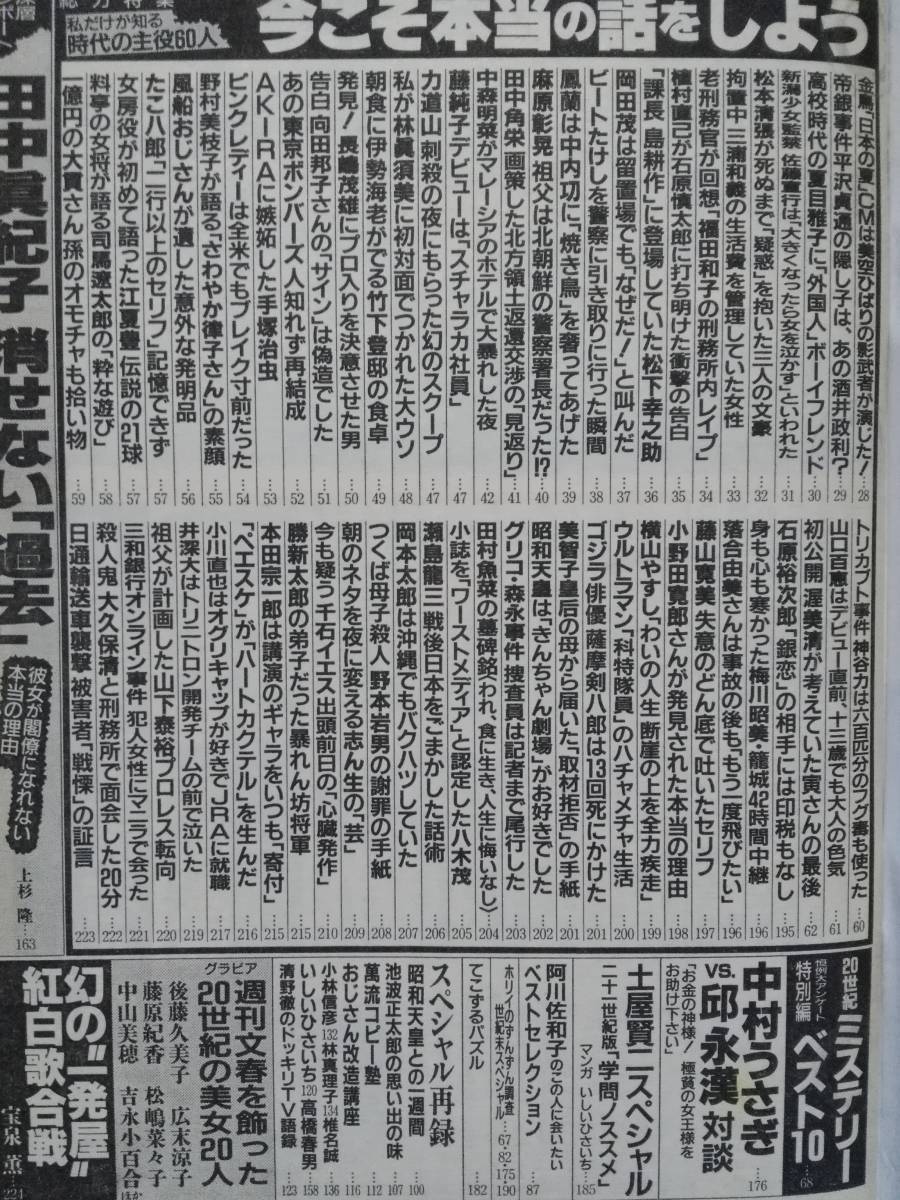 総力特集
私だけが知る
時代の主役60人
今こそ本当の話をしよう
金鳥「日本の夏」CMは美空ひばりの影武者が演じた!…28
帝銀事件平沢貞通の隠し子は、あの酒井政利?…29
高校時代の夏目雅子に「外国人」ボーイフレンド…30
新潟少女監禁 佐藤宣行は「大きくなったら女を泣かす」といわれた…31
松本清張が死ぬまで「疑惑」を抱いた三人の文豪…32
拘置中 三浦和義の生活費を管理していた女性…33
老刑務官が回想「福田和子の刑務所内レイプ」…34
植村直己が石原慎太郎に打ち明けた衝撃の告白…35
「課長 島耕作」に登場していた松下幸之助…36
岡田茂は留置場でも「なぜだ!」と叫んだ…37
ビートたけしを警察に引き取りに行った瞬間…38
鳳蘭は中内功に「焼き鳥」を奢ってあげた…39
麻原彰晃 祖父は北朝鮮の警察署長だった!?…40
田中角栄 画策した北方領土返還交渉の「見返り」…41
中森明菜がマレーシアのホテルで大暴れした夜…42
藤純子デビューは「スチャラカ社員」…47
力道山 刺殺の夜にもらった幻のスクープ…47
私が林眞須美に初対面でつかれた大ウソ…48
朝食に伊勢海老がでる竹下登邸の食卓…49
発見!長嶋茂雄にプロ入りを決意させた男…50
告白 向田邦子さんの「サイン」は偽造でした…51
あの東京ボンバーズ 人知れず再結成…52
AKIRAに嫉妬した手塚治虫…53
ピンクレディーは全米でもブレイク寸前だった…54
野村美枝子が語る「さわやか律子さん」の素顔…55
風船おじさんが遺した意外な発明品…56
たこ八郎「二行以上のセリフ」記憶できず…57
女房役が初めて語った江夏豊 伝説の21球…57
料亭の女将が語る司馬遼太郎の「粋な遊び」…58
一億円の大貫さん 孫のオモチャも拾い物…59
トリカブト事件 神谷力は六百匹分のフグ毒も使った…60
山口百恵はデビュー直前、十三歳でも大人の色気…61
初公開 渥美清が考えていた寅さんの最後…62
石原裕次郎「銀恋」の相手には印税もなし…195
身も心も寒かった梅川昭美・籠城42時間中継…196
落合由美さんは事故の後も「もう一度飛びたい」…196
藤山寛美 失意のどん底で吐いたセリフ…197
小野田寛郎さんが発見された本当の理由…198
横山やすし「わいの人生 断崖の上を全力疾走」…199
ウルトラマン「科特隊員」のハチャメチャ生活…200
ゴジラ俳優 薩摩剣八郎は13回死にかけた…201
美智子皇后の母から届いた「取材拒否」の手紙…201
昭和天皇は「きんちゃん劇場」がお好きでした…202
グリコ・森永事件 捜査員は記者まで尾行した…203
田村魚菜の墓碑銘〈われ、食に生き、人生に悔いなし〉…204
小誌を「ワーストメディア」と認定した八木茂…205
瀬島龍三 戦後日本をごまかした話術…206
岡本太郎は沖縄でもバクハツしていた…207
つくば母子殺人 野本岩男の謝罪の手紙…208
朝のネタを夜に変える志ん生の「芸」…209
今も疑う千石イエス出頭前日の「心臓発作」…210
勝新太郎の弟子だった暴れん坊将軍…215
本田宗一郎は講演のギャラをいつも「寄付」…215
「ペエスケ」が「ハートカクテル」を生んだ…216
小川直也はオグリキャップが好きでJRAに就職…217
井深大はトリニトロン開発チームの前で泣いた…219
祖父が計画した山下泰裕プロレス転向…220
三和銀行オンライン事件 犯人女性にマニラで会った…221
殺人鬼 大久保清と刑務所で面会した20分…222
日通輸送車襲撃 被害者「戦慄」の証言…223
田中眞紀子 消せない「過去」
彼女が閣僚になれない
本当の理由
上杉 隆…163
20世紀
恒例大アンケート
ミステリー
特別編
ベスト10…68
中村うさぎ
VS.邱永漢 対談
「お金の神様!極貧の女王様を
お助け下さい」
…176
土屋賢二スペシャル
二十一世紀版「学問ノススメ」
マンガ いしいひさいち…185
阿川佐和子のこの人に会いたい
ベストセレクション…87
ホリイのずんずん調査
世紀末スペシャル…67・82・175・190
てこずるパズル…182
スペシャル再録
昭和天皇との一週間…100
池波正太郎の思い出の味…107
萬流コピー塾…112
おじさん改造講座…116
小林信彦132 林真理子134 椎名誠…136
いしいひさいち120 高橋春男…158
清野徹のドッキリTV語録…123
グラビア
週刊文春を飾った
20世紀の美女20人
後藤久美子 広末涼子
藤原紀香 松嶋菜々子
中山美穂 吉永小百合
幻の"一発屋"
紅白歌合戦
宝泉 薫…224